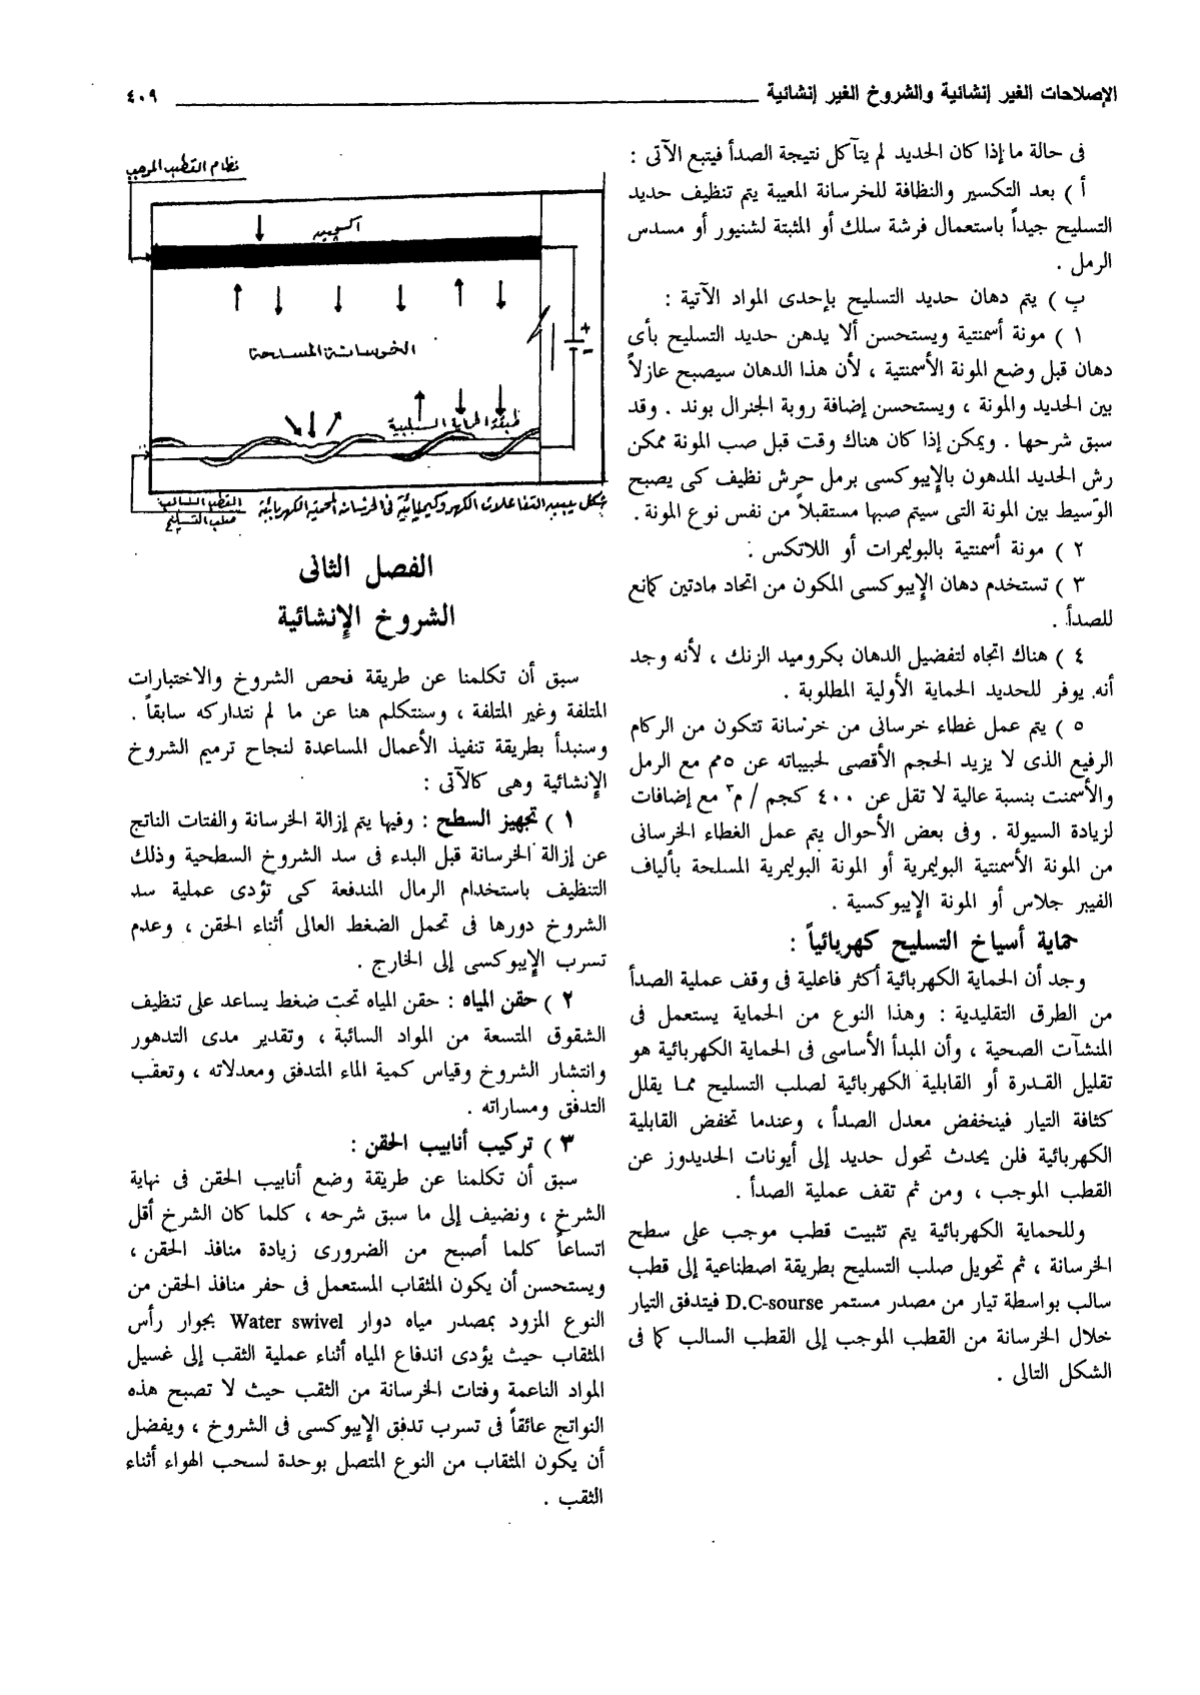 الإصلاحات الغير إنشائية والشروخ الغير إنشائية ٤٠٩
فى حالة ما إذا كان الحديد لم يتآكل نتيجة الصدأ فيتبع الآتى :
أ ) بعد التكسير والنظافة للخرسانة المعيبة يتم تنظيف حديد
التسليح جيداً باستعمال فرشة سلك أو المثبتة لشنيور أو مسدس
الرمل .
ب ) يتم دهان حديد التسليح بإحدى المواد الآتية :
١ ) مونة أسمنتية ويستحسن ألا يدهن حديد التسليح بأى
دهان قبل وضع المونة الأسمنتية ، لأن هذا الدهان سيصبح عازلاً
بين الحديد والمونة ، ويستحسن إضافة روبة الجنرال بوند . وقد
سبق شرحها . ويمكن إذا كان هناك وقت قبل صب المونة ممكن
رش الحديد المدهون بالإيبوكسى برمل حرش نظيف كى يصبح
الوسيط بين المونة التى سيتم صبها مستقبلاً من نفس نوع المونة .
٢ ) مونة أسمنتية بالبوليمرات أو اللاتكس :
٣ ) تستخدم دهان الإيبوكسى المكون من اتحاد مادتين كمانع
للصدأ .
٤ ) هناك اتجاه لتفضيل الدهان بكروميد الزنك ، لأنه وجد
أنه يوفر للحديد الحماية الأولية المطلوبة .
٥ ) يتم عمل غطاء خرسانى من خرسانة تتكون من الركام
الرفيع الذى لا يزيد الحجم الأقصى لحبيباته عن ٥مم مع الرمل
والأسمنت بنسبة عالية لا تقل عن ٤٠٠ كجم / م٣ مع إضافات
لزيادة السيولة . وفى بعض الأحوال يتم عمل الغطاء الخرسانى
من المونة الأسمنتية البوليمرية أو المونة البوليمرية المسلحة بألياف
الفيبر جلاس أو المونة الإيبوكسية .
حماية أسياخ التسليح كهربائياً :
وجد أن الحماية الكهربائية أكثر فاعلية فى وقف عملية الصدأ
من الطرق التقليدية : وهذا النوع من الحماية يستعمل فى
المنشآت الصحية ، وأن المبدأ الأساسى فى الحماية الكهربائية هو
تقليل القدرة أو القابلية الكهربائية لصلب التسليح مما يقلل
كثافة التيار فينخفض معدل الصدأ ، وعندما تخفض القابلية
الكهربائية فلن يحدث تحول حديد إلى أيونات الحديدوز عن
القطب الموجب ، ومن ثم تقف عملية الصدأ .
وللحماية الكهربائية يتم تثبيت قطب موجب على سطح
الخرسانة ، ثم تحويل صلب التسليح بطريقة اصطناعية إلى قطب
سالب بواسطة تيار من مصدر مستمر D.C-sourse فيتدفق التيار
خلال الخرسانة من القطب الموجب إلى القطب السالب كما فى
الشكل التالى .
نظام القطب الموجب
اكسجين
الخرسانة المسلحة
+
-
طبقة الحماية السلبية
القطب السالب
صلب التسليح
شكل يبين التفاعلات الكهروكيميائية فى الخرسانة المحمية الكهربائية
الفصل الثانى
الشروخ الإنشائية
سبق أن تكلمنا عن طريقة فحص الشروخ والاختبارات
المتلفة وغير المتلفة ، وسنتكلم هنا عن ما لم نتداركه سابقاً .
وسنبدأ بطريقة تنفيذ الأعمال المساعدة لنجاح ترميم الشروخ
الإنشائية وهى كالآتى :
١ ) تجهيز السطح : وفيها يتم إزالة الخرسانة والفتات الناتج
عن إزالة الخرسانة قبل البدء فى سد الشروخ السطحية وذلك
التنظيف باستخدام الرمال المندفعة كى تؤدى عملية سد
الشروخ دورها فى تحمل الضغط العالى أثناء الحقن ، وعدم
تسرب الإيبوكسى إلى الخارج .
٢ ) حقن المياه : حقن المياه تحت ضغط يساعد على تنظيف
الشقوق المتسعة من المواد السائبة ، وتقدير مدى التدهور
وانتشار الشروخ وقياس كمية الماء المتدفق ومعدلاته ، وتعقب
التدفق ومساراته .
٣ ) تركيب أنابيب الحقن :
سبق أن تكلمنا عن طريقة وضع أنابيب الحقن فى نهاية
الشرخ ، ونضيف إلى ما سبق شرحه ، كلما كان الشرخ أقل
اتساعاً كلما أصبح من الضرورى زيادة منافذ الحقن ،
ويستحسن أن يكون المثقاب المستعمل فى حفر منافذ الحقن من
النوع المزود بمصدر مياه دوار Water swivel بجوار رأس
المثقاب حيث يؤدى اندفاع المياه أثناء عملية الثقب إلى غسيل
المواد الناعمة وفتات الخرسانة من الثقب حيث لا تصبح هذه
النواتج عائقاً فى تسرب تدفق الإيبوكسى فى الشروخ ، ويفضل
أن يكون المثقاب من النوع المتصل بوحدة لسحب الهواء أثناء
الثقب .